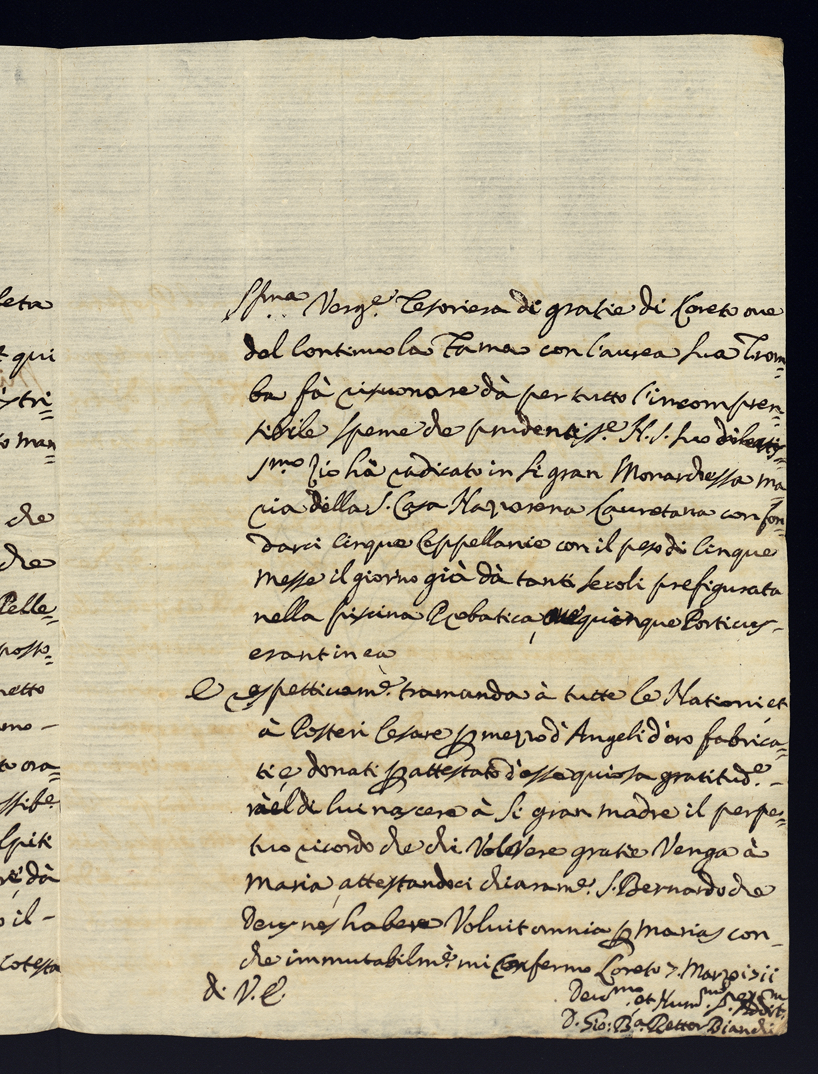 leta
SS.ma Verg.e Tesoriera di gratie di Loreto ove
qui
del continuo la Fama con l'aurea sua Trom=
stri=
ba fà risuonare dà per tutto l'incompren=
o man
sibile speme de prudentiss.e N. S. suo dilettis=
s.mo Zio hà radicato in si gran Monarchessa ma
che
ria della S. Casa Nazarena Lauretana con fon=
darci cinque Cappellanie con il peso di cinque
che
messe il giorno già dà tanti secoli prefigurata
Pelle=
nella piscina Probatica, quinque Porticus
erant in ea
posto=
e rispettivam.e tramanda à tutte le Nationi, et
netto
à Posteri Cesare per mezzo d'Angeli d'oro fabrica=
mo -
ti, e donati per attestato d'ossequiosa gratitud.e -
to ora=
nel di lui nascere à si gran madre il perpe=
ssib.e
tuo ricordo che chi Volere gratie Venga à
lpiti
Maria, attestandoci chiaram.e S. Bernardo che
re dà
Deus nos habere Voluit omnia per Marias con
o il -
che immutabilm.e mi Confermo Loreto 7. Marzo 1711
cotesta
di V. E.
Dev.mo et Hum.mo
D. Gio: B.a Rettor Bianchi